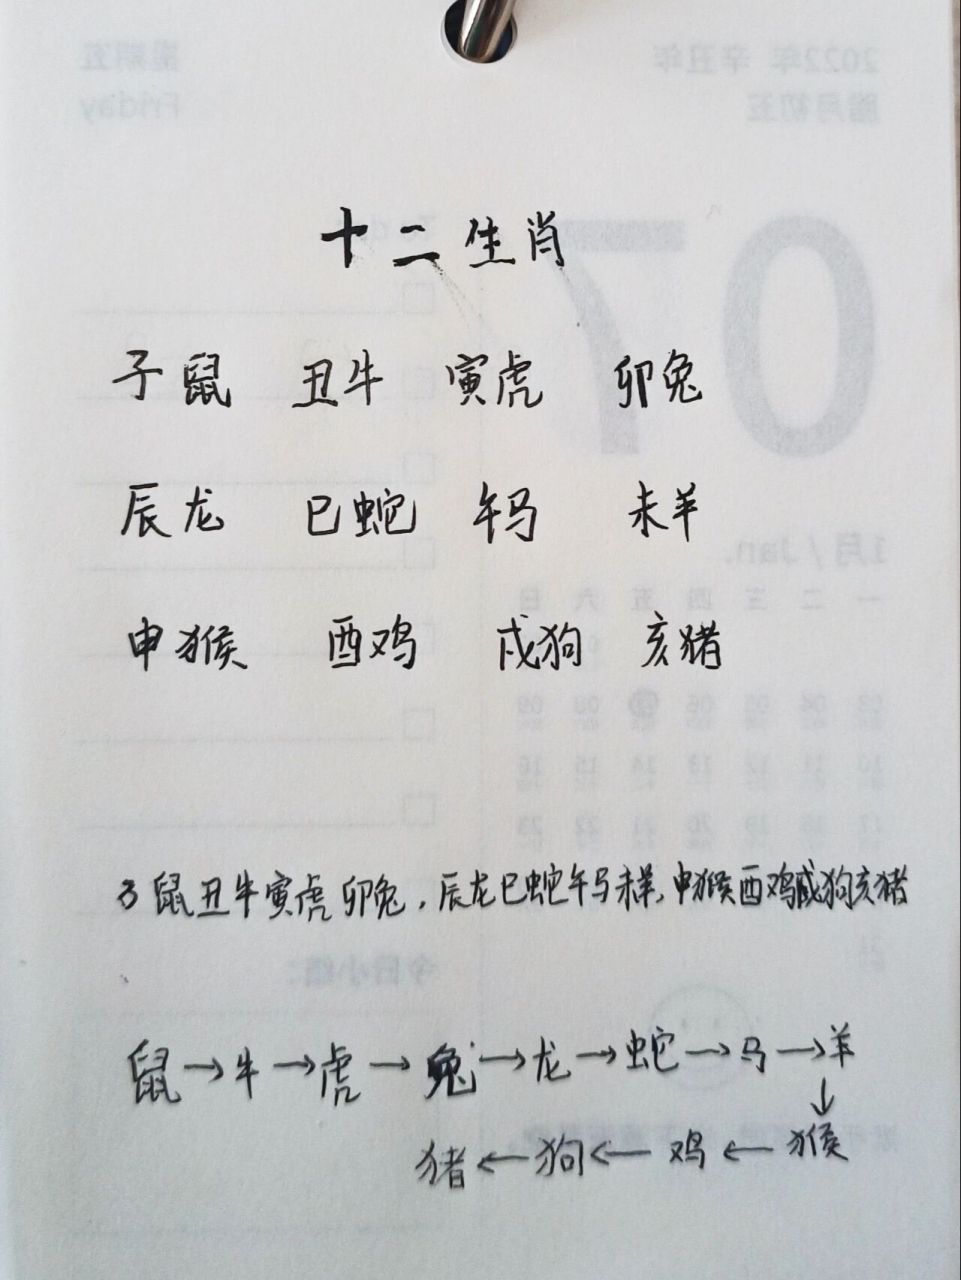 十二生肖
子鼠 丑牛 寅虎 卯兔
辰龙 巳蛇 午马 未羊
申猴 酉鸡 戌狗 亥猪
子鼠丑牛寅虎卯兔，辰龙巳蛇午马未羊，申猴酉鸡戌狗亥猪
鼠→牛→虎→兔→龙→蛇→马→羊
↓
猪←狗←鸡←猴